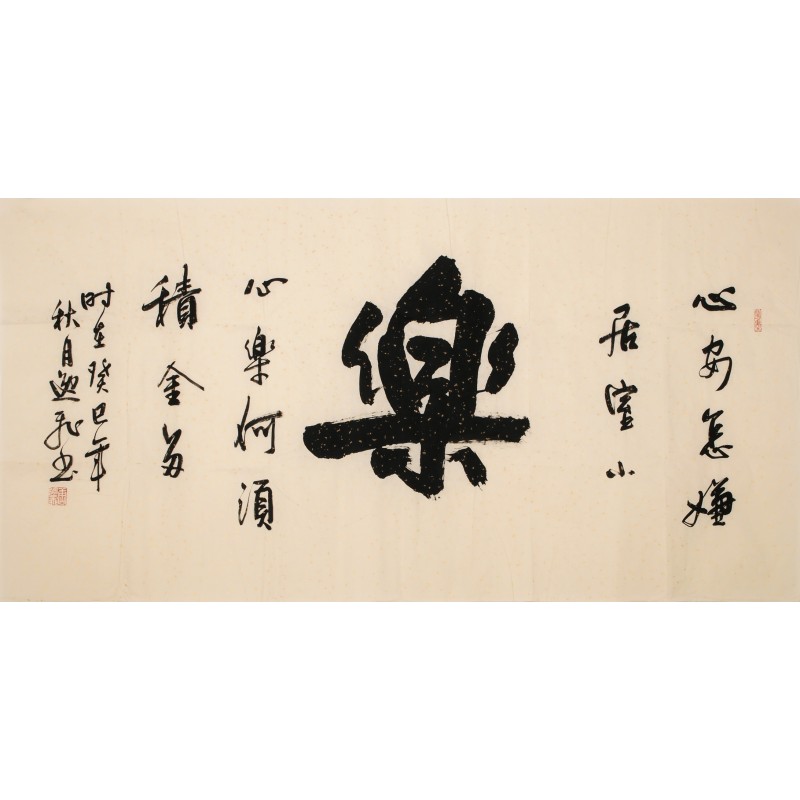 心安怎嫌
居室小
樂
心樂何須
積金多
时在癸巳年
秋月逸飛书